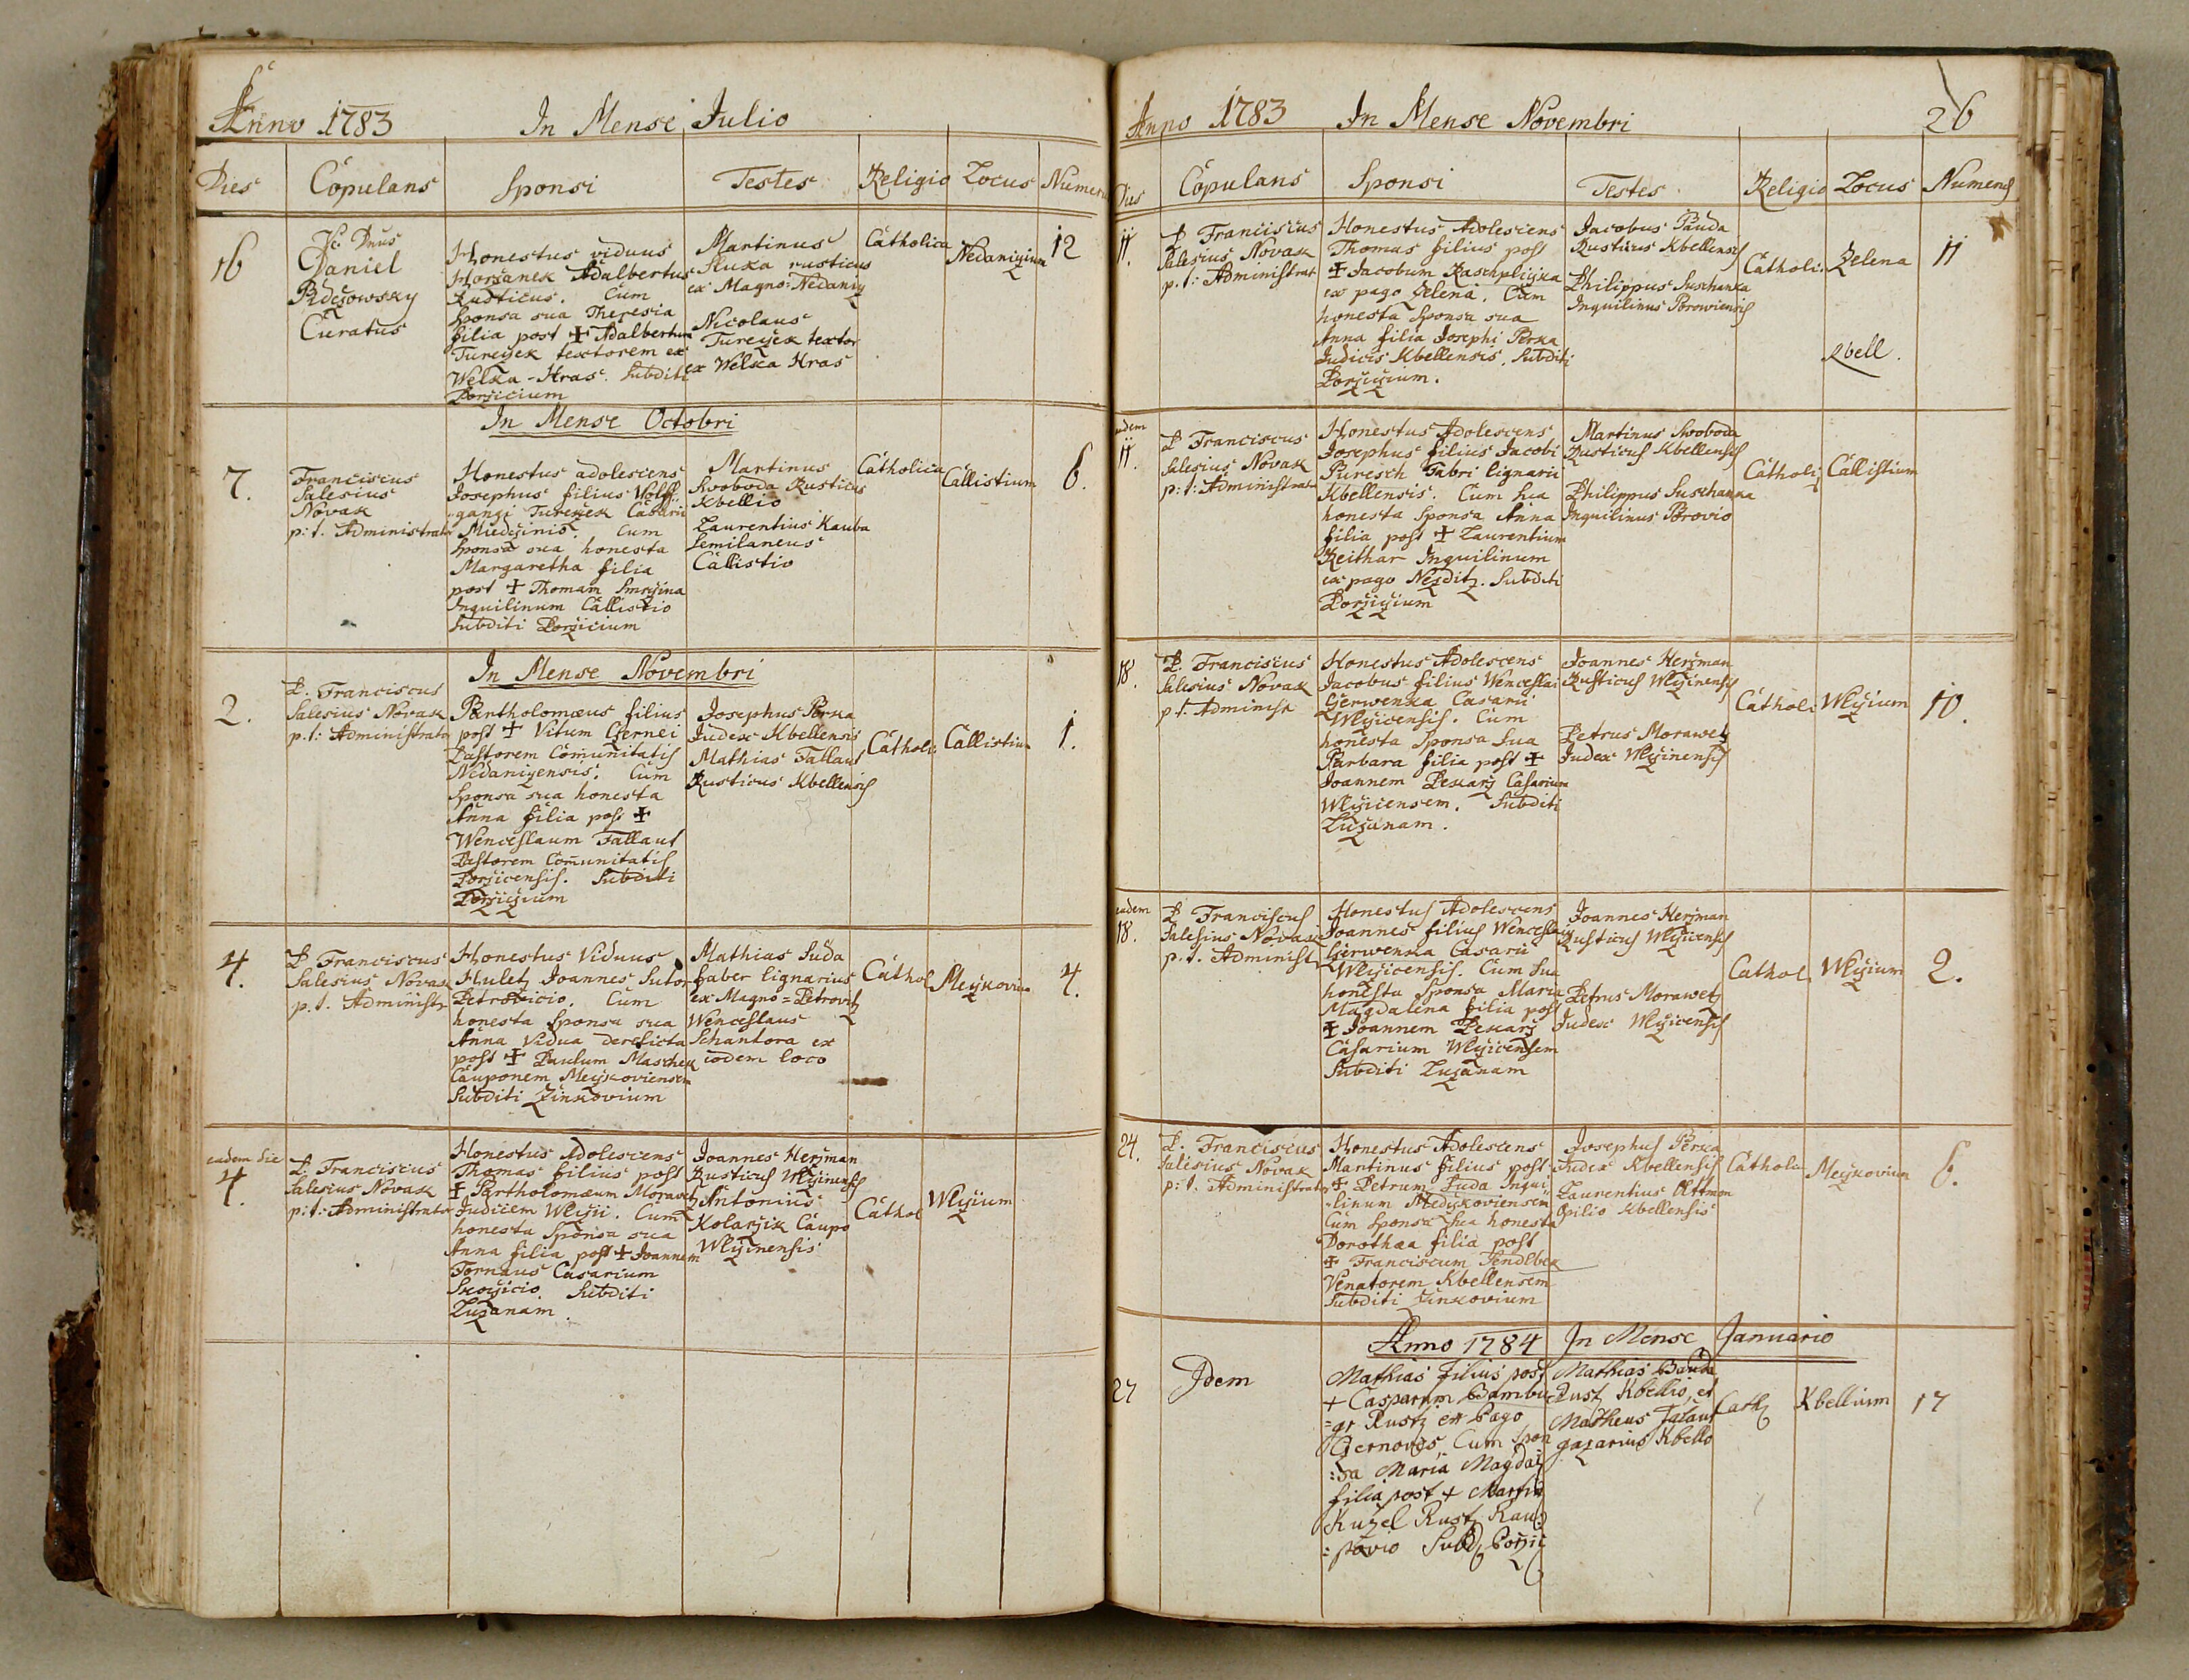 Anno 1783 In Mense Julio
Dies Copulans Sponsi Testes Religio Locus Numerus
16
Vc. Dnus
Daniel
Curatus
Honestus viduus
Horžanek Adalbertus
Rusticus. Cum
Sponsa sua Theresia
filia post ✝ Adalbertum
Tureczek textorem ex
Welka-Hras. Subditi
Porzicium
Martinus
Sluka rusticus
ex Magno-Nedaniz
Nicolaus
Tureczek textor
ex Welka Hras
Catholica
12
In Mense Octobri
7.
Franciscus
Salesius
Novak
p: t. Administrator
Honestus adolescens
Josephus filius Wolff-
gangi Tureczek Casarii
Cum
Sponsa sua honesta
Margaretha filia
post ✝ Thomam
Inquilinum Callistio
Subditi Porzicium
Martinus
Swoboda Rusticus
Kbellio
Laurentius Kauba
Semilaneus
Callistio
Catholica
Callistium
6.
In Mense Novembri
2.
P. Franciscus
Salesius Novak
p. t: Administrator
Bartholomæus filius
post ✝ Vitum Czernei
Pastorem Comunitatis
Cum
Sponsa sua honesta
Anna filia post ✝
Wenceslaum Fallaut
Pastorem Comunitatis
Porzicensis. Subditi
Porziczium
Josephus Perka
Judex Kbellensis
Mathias Fallaut
Rusticus Kbellensis
Catholi
Callistium
1.
4.
P. Franciscus
Salesius Novak
p. t. Administr
Honestus Viduus
Huletz Joannes Sutor
Petrovicio. Cum
honesta Sponsa sua
Anna Vidua derelicta
post ✝ Paulum Maschek
Cauponem
Subditi Zinkovium
Mathias Suda
faber lignarius
ex Magno=Petrovitz
Wenceslaus
Schantora ex
eodem loco
Cathol
4.
eadem die
4.
P. Franciscus
Salesius Novak
p: t: Administrator
Honestus Adolescens
Thomas filius post
✝ Bartholomæum Morawetz
Judicem Wlczii. Cum
honesta Sponsa sua
Anna filia post ✝ Joannem
Tornaus Casarium
Subditi
Luzanam.
Joannes Herzman
Rusticus Wlczinensis
Antonius
Kolarzik Caupo
Wlczinensis
Cathol
Wlczium
Anno 1783 In Mense Novembri 26
Dies Copulans Sponsi Testes Religio Locus Numerus
11.
P. Franciscus
Salesius Novak
p. t: Administrat
Honestus Adolescens
Thomas filius post
✝ Jacobum
ex pago Zelena. Cum
honesta Sponsa sua
Anna filia Josephi Perka
Judicis Kbellensis. Subditi
Porziczium.
Jacobus Pauda
Rusticus Kbellensis
Philippus Suschanka
Inquilinus Borowiensis
Catholi
Zelena
Kbell.
11
eadem
11.
P. Franciscus
Salesius Novak
p: t: Administrat
Honestus Adolescens
Josephus filius Jacobi
Puresch Fabri lignarii
Kbellensis. Cum sua
honesta Sponsa Anna
filia post ✝ Laurentium
Reithar Inquilinum
ex pago Nezditz. Subditi
Porziczium
Martinus Swoboda
Rusticus Kbellensis
Philippus Suschanka
Inquilinus Borovio
Catholi
Callistium
18.
P. Franciscus
Salesius Novak
p t. Administ
Honestus Adolescens
Jacobus filius Wenceslai
Czerwenka Casarii
Wlczicensis. Cum
honesta Sponsa Sua
Barbara filia post ✝
Joannem Pekarz Casarium
Wlczicensem. Subditi
Luzanam.
Joannes Herzman
Rusticus Wlczinensis
Petrus Morawetz
Judex Wlczinensis
Catholi
Wlczium
10.
eadem
18.
P. Franciscus
Salesius Novak
p. t. Administ
Honestus Adolescens
Joannes filius Wenceslai
Czerwenka Casarii
Wlczicensis. Cum Sua
honesta Sponsa Maria
Magdalena filia post
✝ Joannem Pekarz
Casarium Wlczicensem
Subditi Luzanam
Joannes Herzman
Rusticus Wlczicensis
Petrus Morawetz
Judex Wlczicensis
Cathol
Wlczium
2.
24.
P. Franciscus
Salesius Novak
p: t. Administrator
Honestus Adolescens
Martinus filius post
✝ Petrum Suda Inqui
-linum
Cum Sponsa Sua honesta
Dorothæa filia post
✝ Franciscum Fendlbek
Venatorem Kbellensem
Subditi Zinkovium
Josephus Perka
Judex Kbellensis
Laurentius Oltman
Opilio Kbellensis
Catholi
6.
Anno 1784 In Mense Januario
27
Idem
Mathias filius post
+ Casparum Bambu-
=gr Rustz ex Pago
Cum Spon
:sa Maria Magdal
filia post + Martin
Kuzel Rustz
Subd Porzic
Mathias Bauda
Rustz Kbellio, et
Matheus Talaut
gazarius Kbello
Cath
Kbellium
17